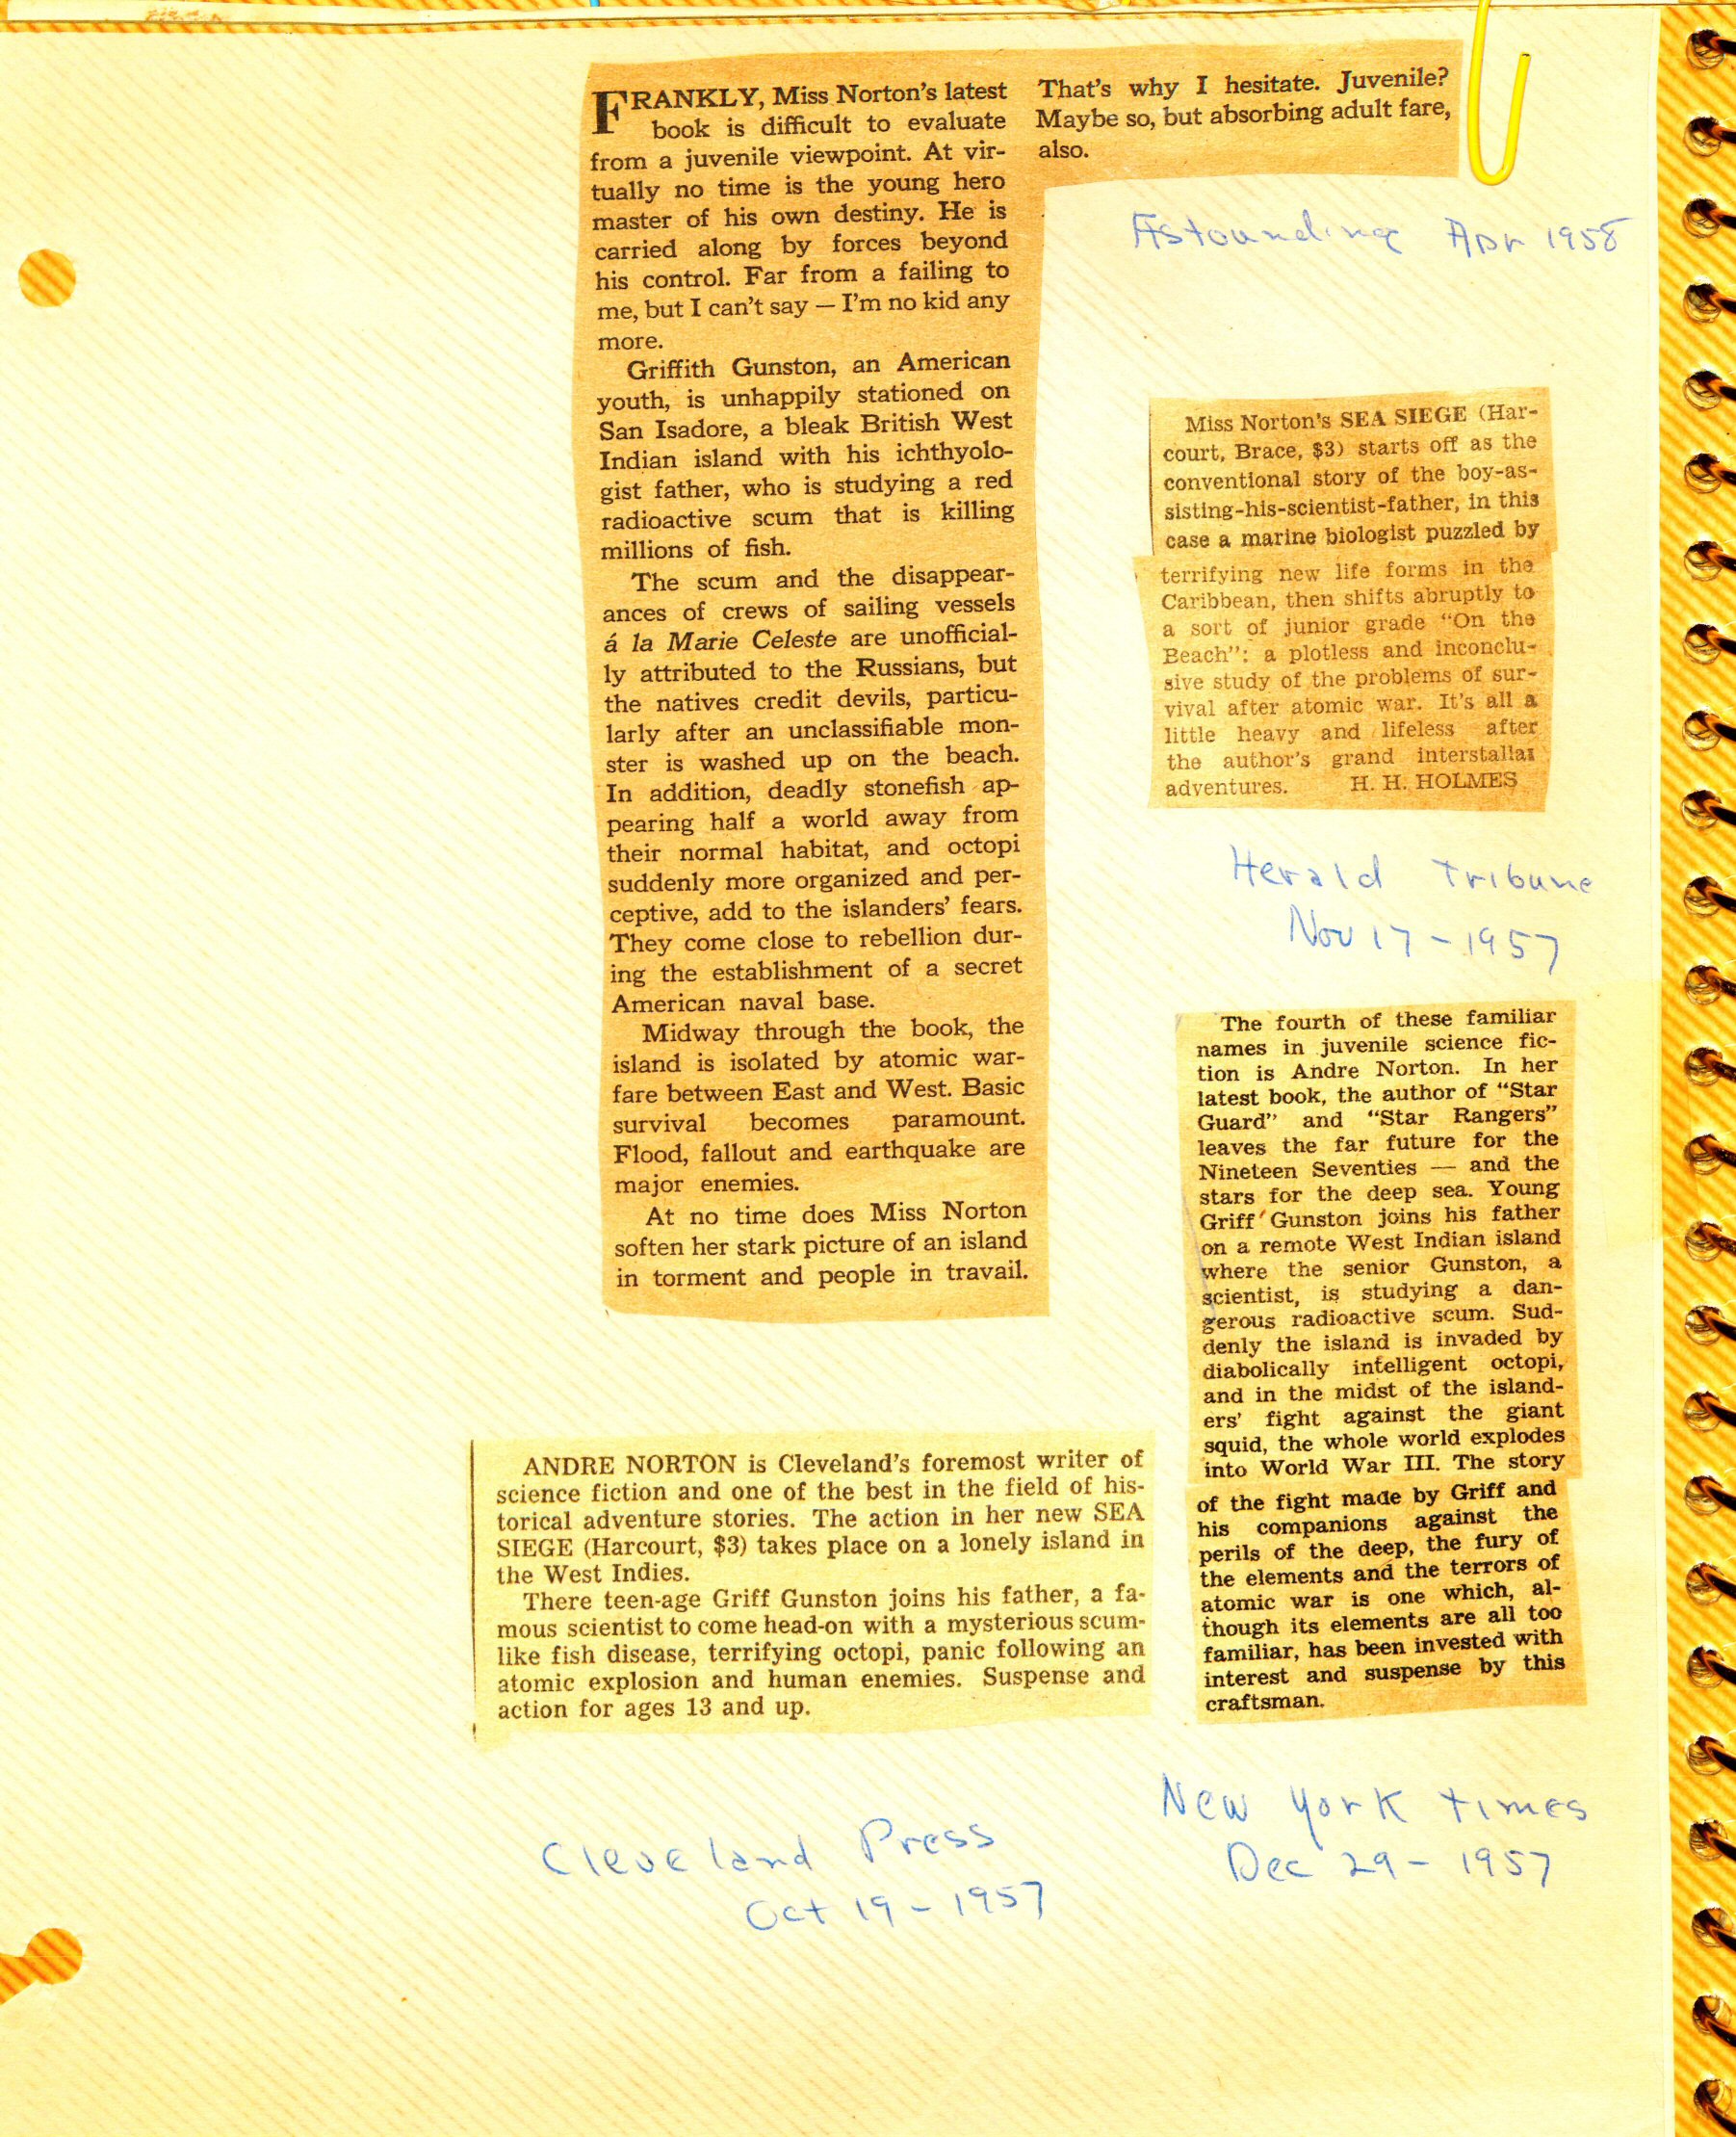 FRANKLY, Miss Norton's latest
book is difficult to evaluate
from a juvenile viewpoint. At vir-
tually no time is the young hero
master of his own destiny. He is
carried along by forces beyond
his control. Far from a failing to
me, but I can't say — I'm no kid any
more.
Griffith Gunston, an American
youth, is unhappily stationed on
San Isadore, a bleak British West
Indian island with his ichthyolo-
gist father, who is studying a red
radioactive scum that is killing
millions of fish.
The scum and the disappear-
ances of crews of sailing vessels
á la Marie Celeste are unofficial-
ly attributed to the Russians, but
the natives credit devils, particu-
larly after an unclassifiable mon-
ster is washed up on the beach.
In addition, deadly stonefish ap-
pearing half a world away from
their normal habitat, and octopi
suddenly more organized and per-
ceptive, add to the islanders' fears.
They come close to rebellion dur-
ing the establishment of a secret
American naval base.
Midway through the book, the
island is isolated by atomic war-
fare between East and West. Basic
survival becomes paramount.
Flood, fallout and earthquake are
major enemies.
At no time does Miss Norton
soften her stark picture of an island
in torment and people in travail.
That's why I hesitate. Juvenile?
Maybe so, but absorbing adult fare,
also.
Astounding Apr 1958
Miss Norton's SEA SIEGE (Har-
court, Brace, $3) starts off as the
conventional story of the boy-as-
sisting-his-scientist-father, in this
case a marine biologist puzzled by
terrifying new life forms in the
Caribbean, then shifts abruptly to
a sort of junior grade "On the
Beach": a plotless and inconclu-
sive study of the problems of sur-
vival after atomic war. It's all a
little heavy and lifeless after
the author's grand interstallar
adventures. H. H. HOLMES
Herald Tribune
Nov 17 - 1957
The fourth of these familiar
names in juvenile science fic-
tion is Andre Norton. In her
latest book, the author of "Star
Guard" and "Star Rangers"
leaves the far future for the
Nineteen Seventies — and the
stars for the deep sea. Young
Griff Gunston joins his father
on a remote West Indian island
where the senior Gunston, a
scientist, is studying a dan-
gerous radioactive scum. Sud-
denly the island is invaded by
diabolically intelligent octopi,
and in the midst of the island-
ers' fight against the giant
squid, the whole world explodes
into World War III. The story
of the fight made by Griff and
his companions against the
perils of the deep, the fury of
the elements and the terrors of
atomic war is one which, al-
though its elements are all too
familiar, has been invested with
interest and suspense by this
craftsman.
New York Times
Dec 29 - 1957
ANDRE NORTON is Cleveland's foremost writer of
science fiction and one of the best in the field of his-
torical adventure stories. The action in her new SEA
SIEGE (Harcourt, $3) takes place on a lonely island in
the West Indies.
There teen-age Griff Gunston joins his father, a fa-
mous scientist to come head-on with a mysterious scum-
like fish disease, terrifying octopi, panic following an
atomic explosion and human enemies. Suspense and
action for ages 13 and up.
Cleveland Press
Oct 19 - 1957